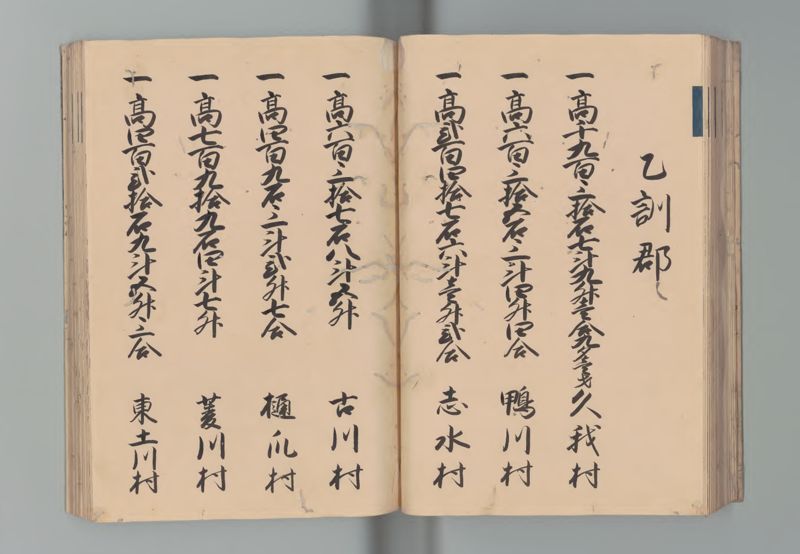 乙訓郡
一高千九百三拾石七斗九升壱合九夕壱才 久我村
一高六百三拾五石三斗四升四合 鴨川村
一高弐百四拾七石六斗壱升弐合 志水村
一高六百三拾七石八斗五升 古川村
一高四百九石三斗弐升七合 樋爪村
一高七百九拾九石四斗七升 菱川村
一高四百弐拾石九斗五升三合 東土川村